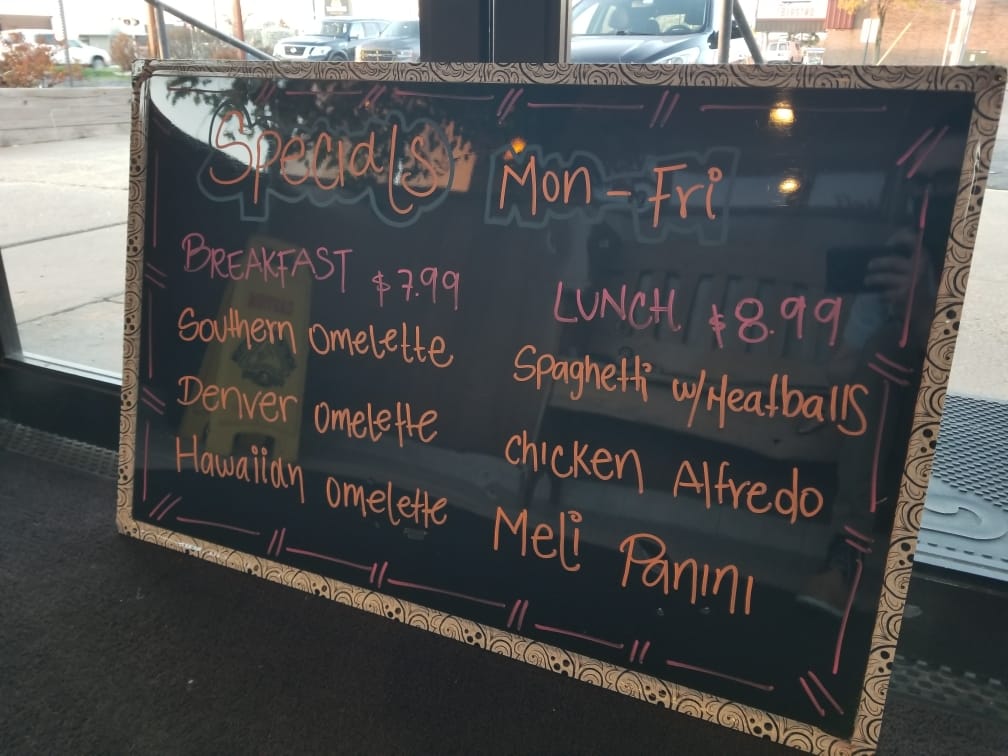 Specials Mon - Fri
BREAKFAST $7.99
Southern Omelette
Denver Omelette
Hawaiian Omelette
LUNCH $8.99
Spaghetti w/Meatballs
Chicken Alfredo
Meli Panini